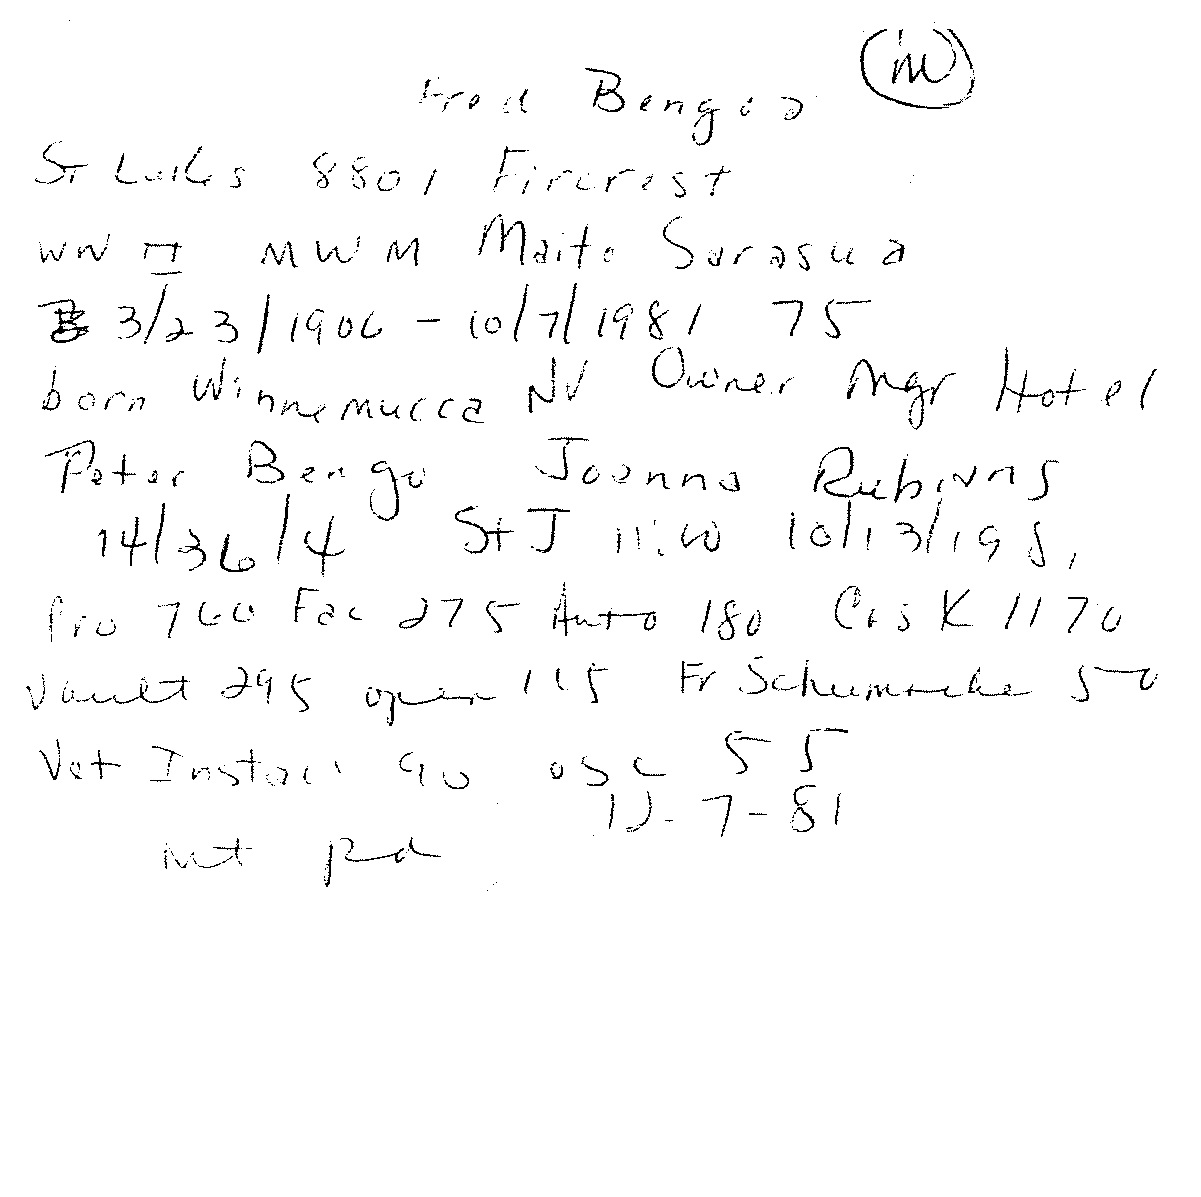 Fred Bengoa (M)
St Lukes 8801 Fircrest
WW II MWM Maito Sarasua
3/23/1906 - 10/7/1981 75
born Winnemucca NV Owner Mgr Hotel
Peter Bengo Joanna Rubivns
14/36/4 St J 11:00 10/13/1981
Pro 760 Fac 275 Auto 180 Cask 1170
Vault 295 open 115 Fr Schumache 50
Vet Install 90 osc 55
12-7-81
mt pd